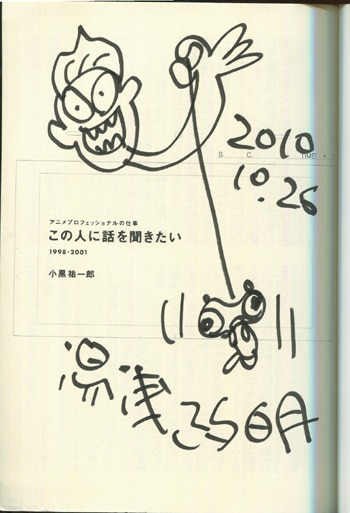 2010
S. C. TIME +
10.26
アニメプロフェッショナルの仕事
この人に話を聞きたい
1998-2001
小黒祐一郎
湯浅政明